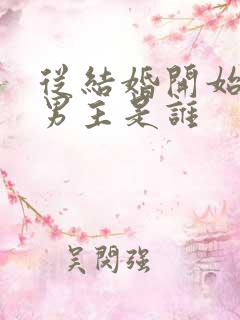 從結婚開始
男主是誰
吴閔强